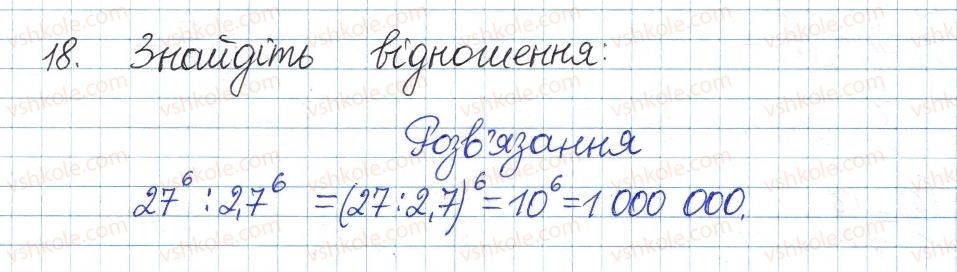 18. Знайдіть відношення:
Розв'язання
27⁶ : 2,7⁶ = (27:2,7)⁶ = 10⁶ = 1 000 000.